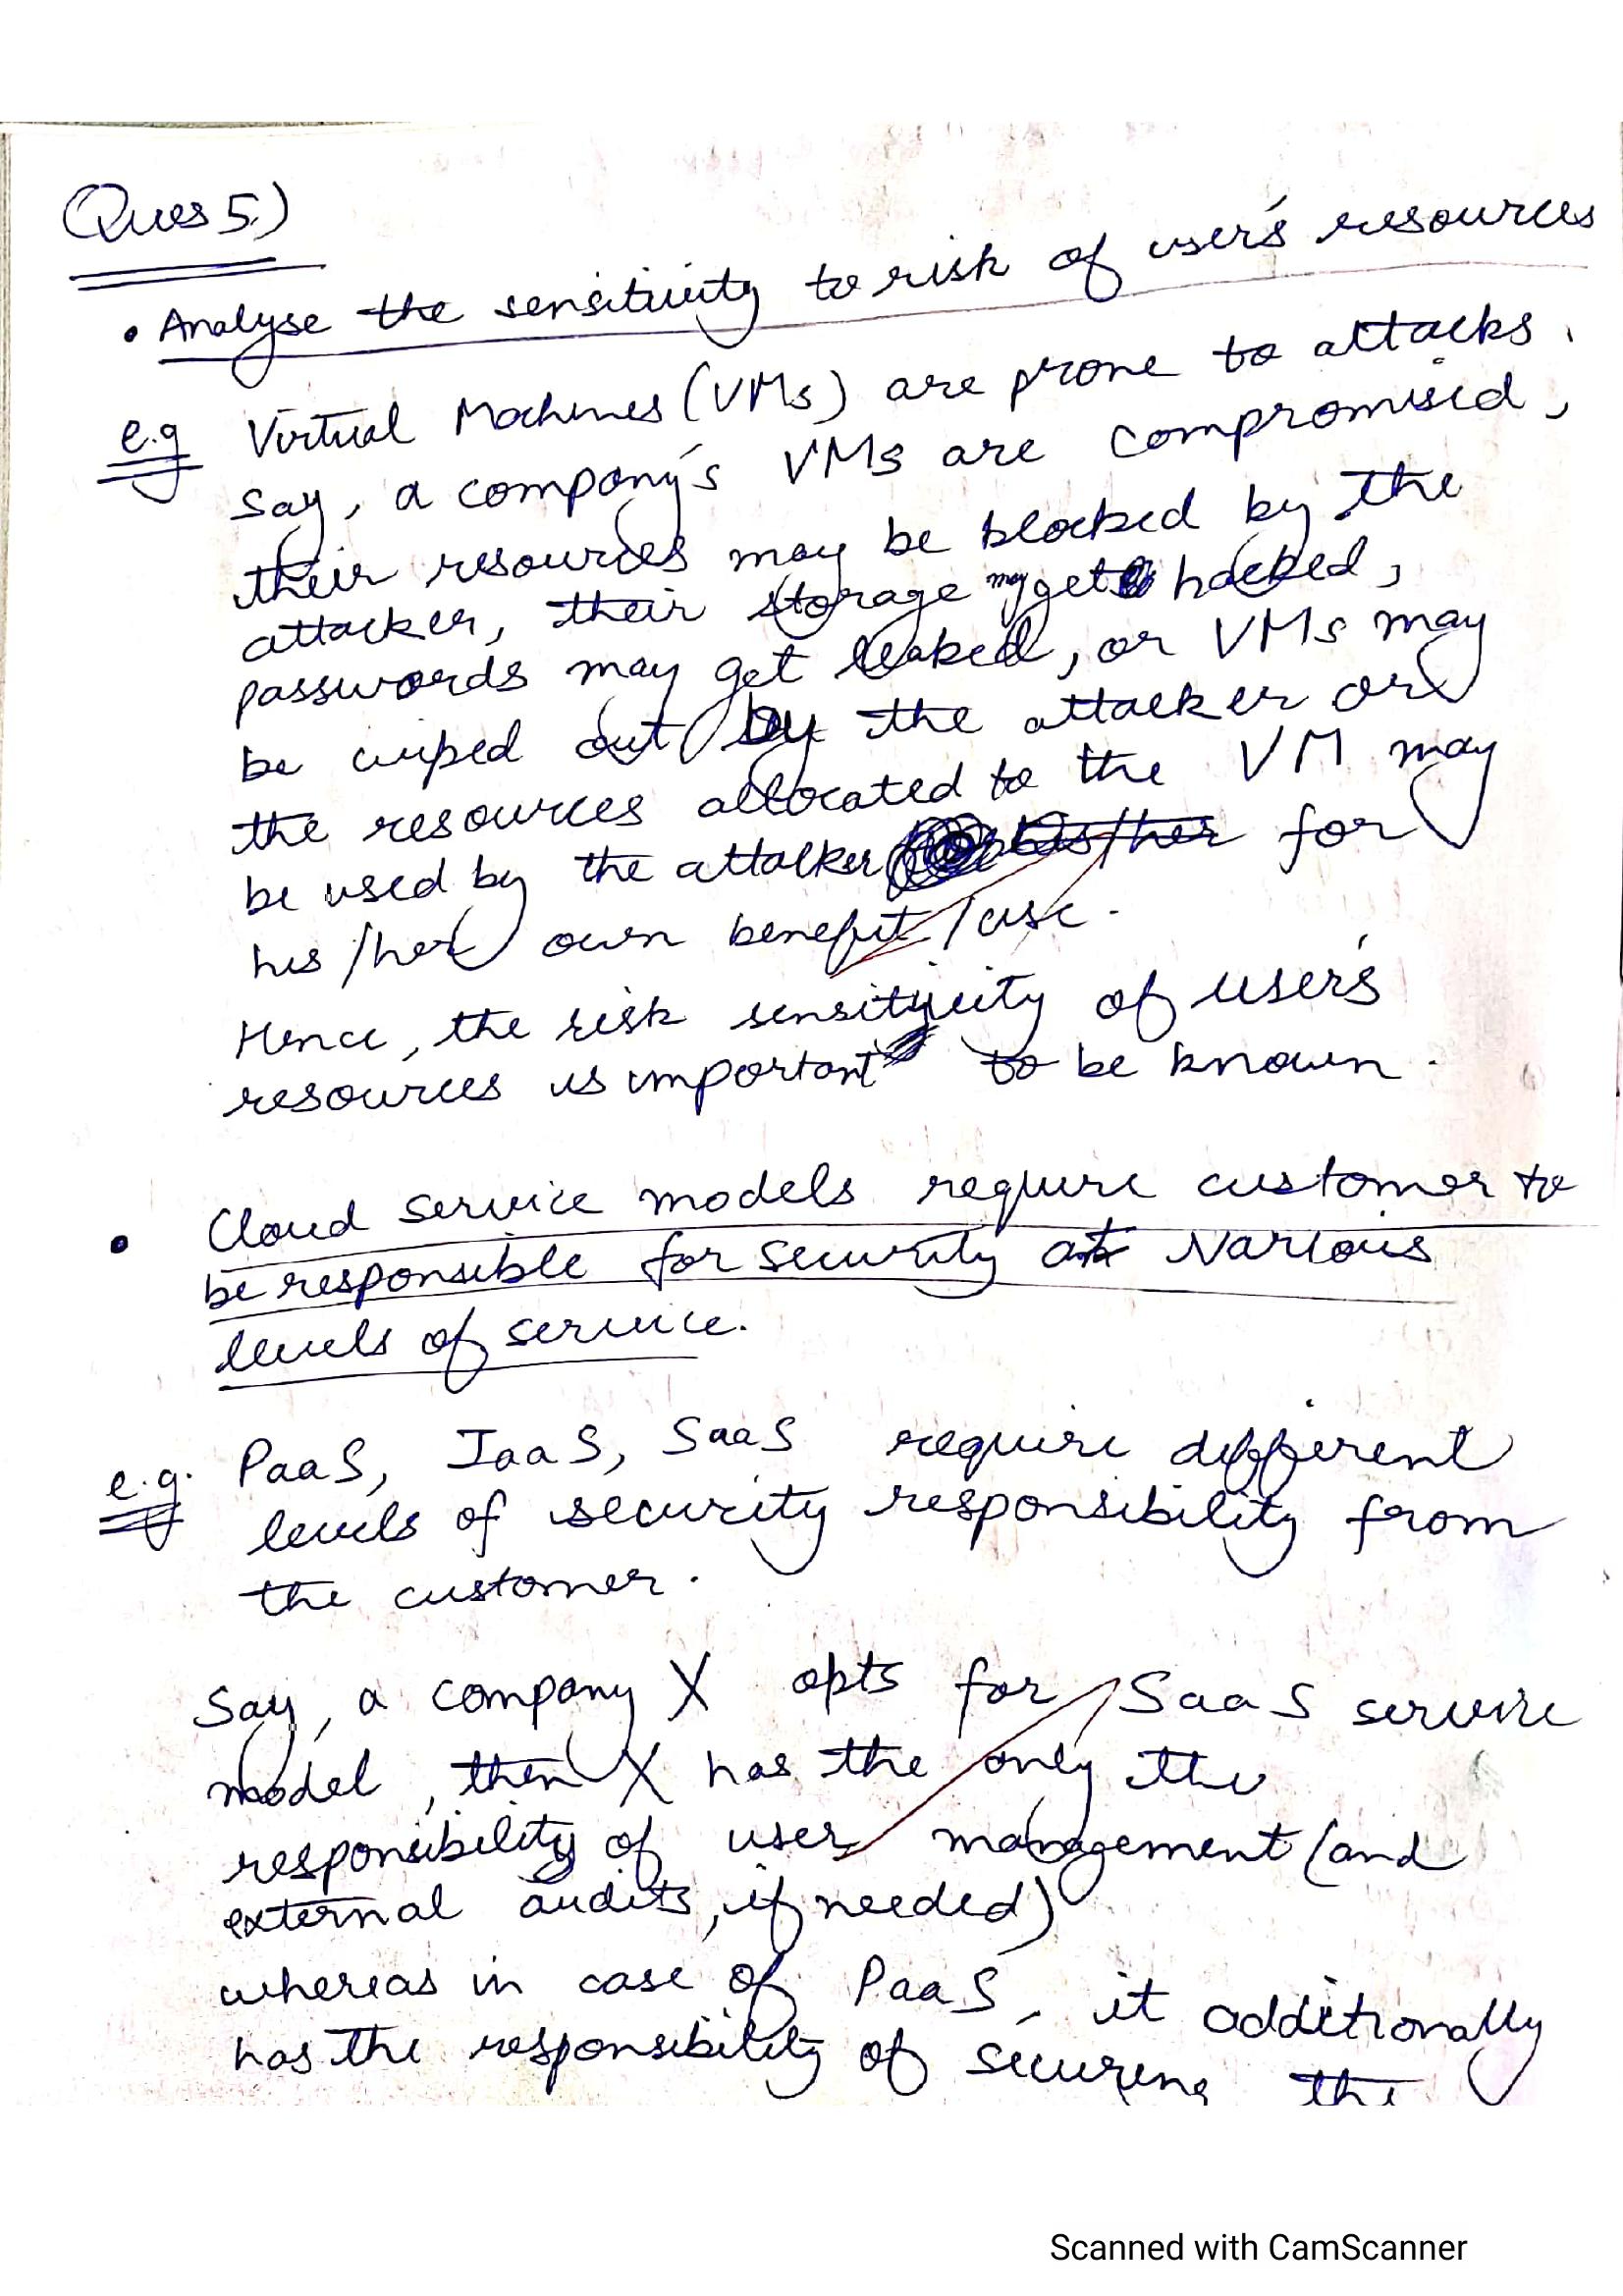 Ques 5.)
• Analyse the sensitivity to risk of user's resources
e.g Virtual Machines (VMs) are prone to attacks.
Say, a company's VMs are compromised,
their resources may be blocked by the
attacker, their storage may get hacked,
passwords may get leaked, or VMs may
be wiped out by the attacker or
the resources allocated to the VM may
be used by the attacker his/her for
his/her own benefit/use.
Hence, the risk sensitivity of user's
resources is important to be known.
• Cloud service models require customer to
be responsible for security at various
levels of service.
e.g. PaaS, IaaS, SaaS require different
levels of security responsibility from
the customer.
Say, a company X opts for SaaS service
model, then X has the only the
responsibility of user management (and
external audits, if needed)
whereas in case of PaaS, it additionally
has the responsibility of securing the
Scanned with CamScanner